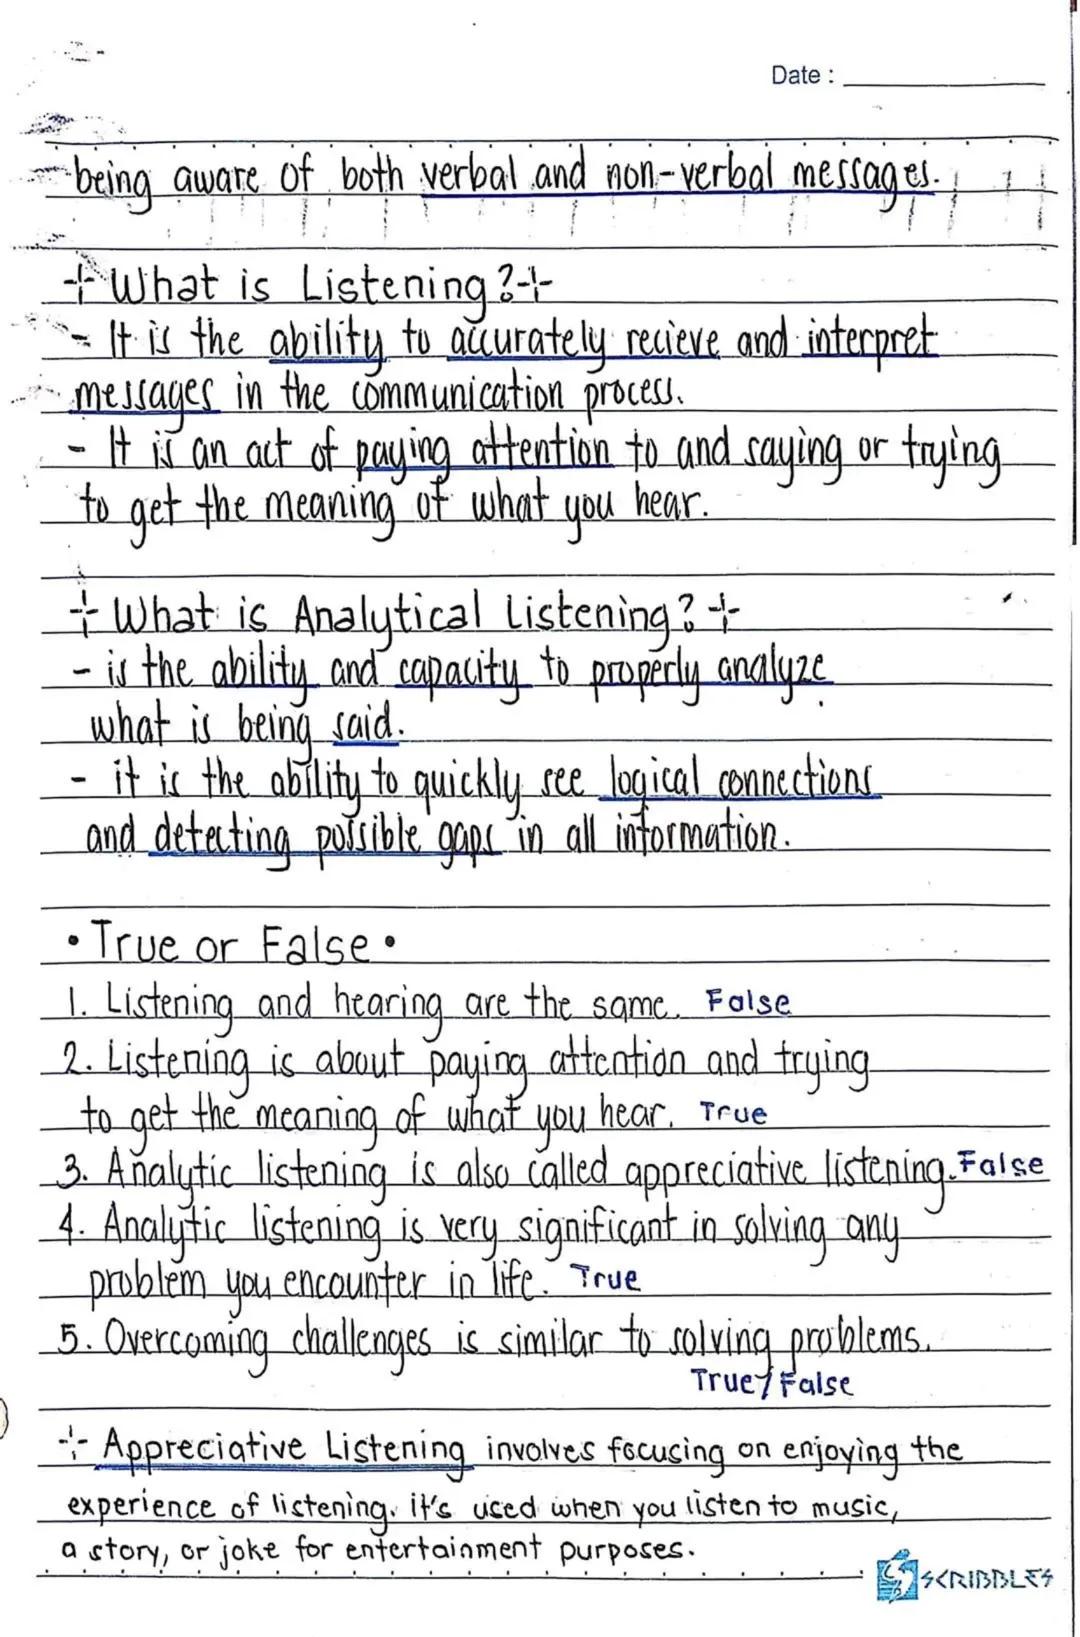 Date :
being aware of both verbal and non-verbal messages.
What is Listening?
- It is the ability to accurately recieve and interpret
messages in the communication process.
- It is an act of paying attention to and saying or trying
to get the meaning of what you hear.
What is Analytical Listening?
- is the ability and capacity to properly analyze
what is being said.
- it is the ability to quickly see logical connections
and detecting possible gaps in all information.
• True or False •
1. Listening and hearing are the same. False
2. Listening is about paying attention and trying
to get the meaning of what you hear. True
3. Analytic listening is also called appreciative listening. False
4. Analytic listening is very significant in solving any
problem you encounter in life. True
5. Overcoming challenges is similar to solving problems.
True / False
Appreciative Listening involves focusing on enjoying the
experience of listening. it's used when you listen to music,
a story, or joke for entertainment purposes.
SCRIBBLES